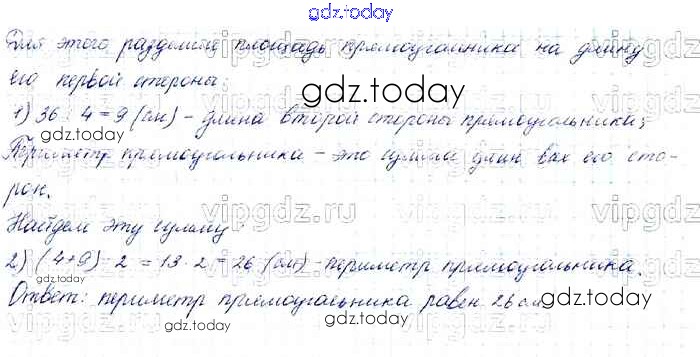 gdz.today
Для этого разделим площадь прямоугольника на длину
его первой стороны:
gdz.today
1) 36 : 4 = 9 (см) - длина второй стороны прямоугольника;
Периметр прямоугольника - это сумма длин всех его сто-
рон.
vipgdz.ru vipgdz.ru vipgdz.ru
Найдем эту сумму:
2) (4+9) · 2 = 13 · 2 = 26 (см) - периметр прямоугольника.
Ответ: периметр прямоугольника равен 26 см.
gdz.today gdz.today